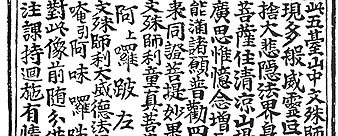 此五臺山中文殊師
現多般威靈
捨大悲隱法界身
菩薩住清凉山
廣思惟憶念增
能滿諸願普勸四
来同證菩提妙果
文殊師利童真菩
阿上囉跛左
文殊師利大威德法
唵引阿味囉
對此像前随分供
注課持迴施有情